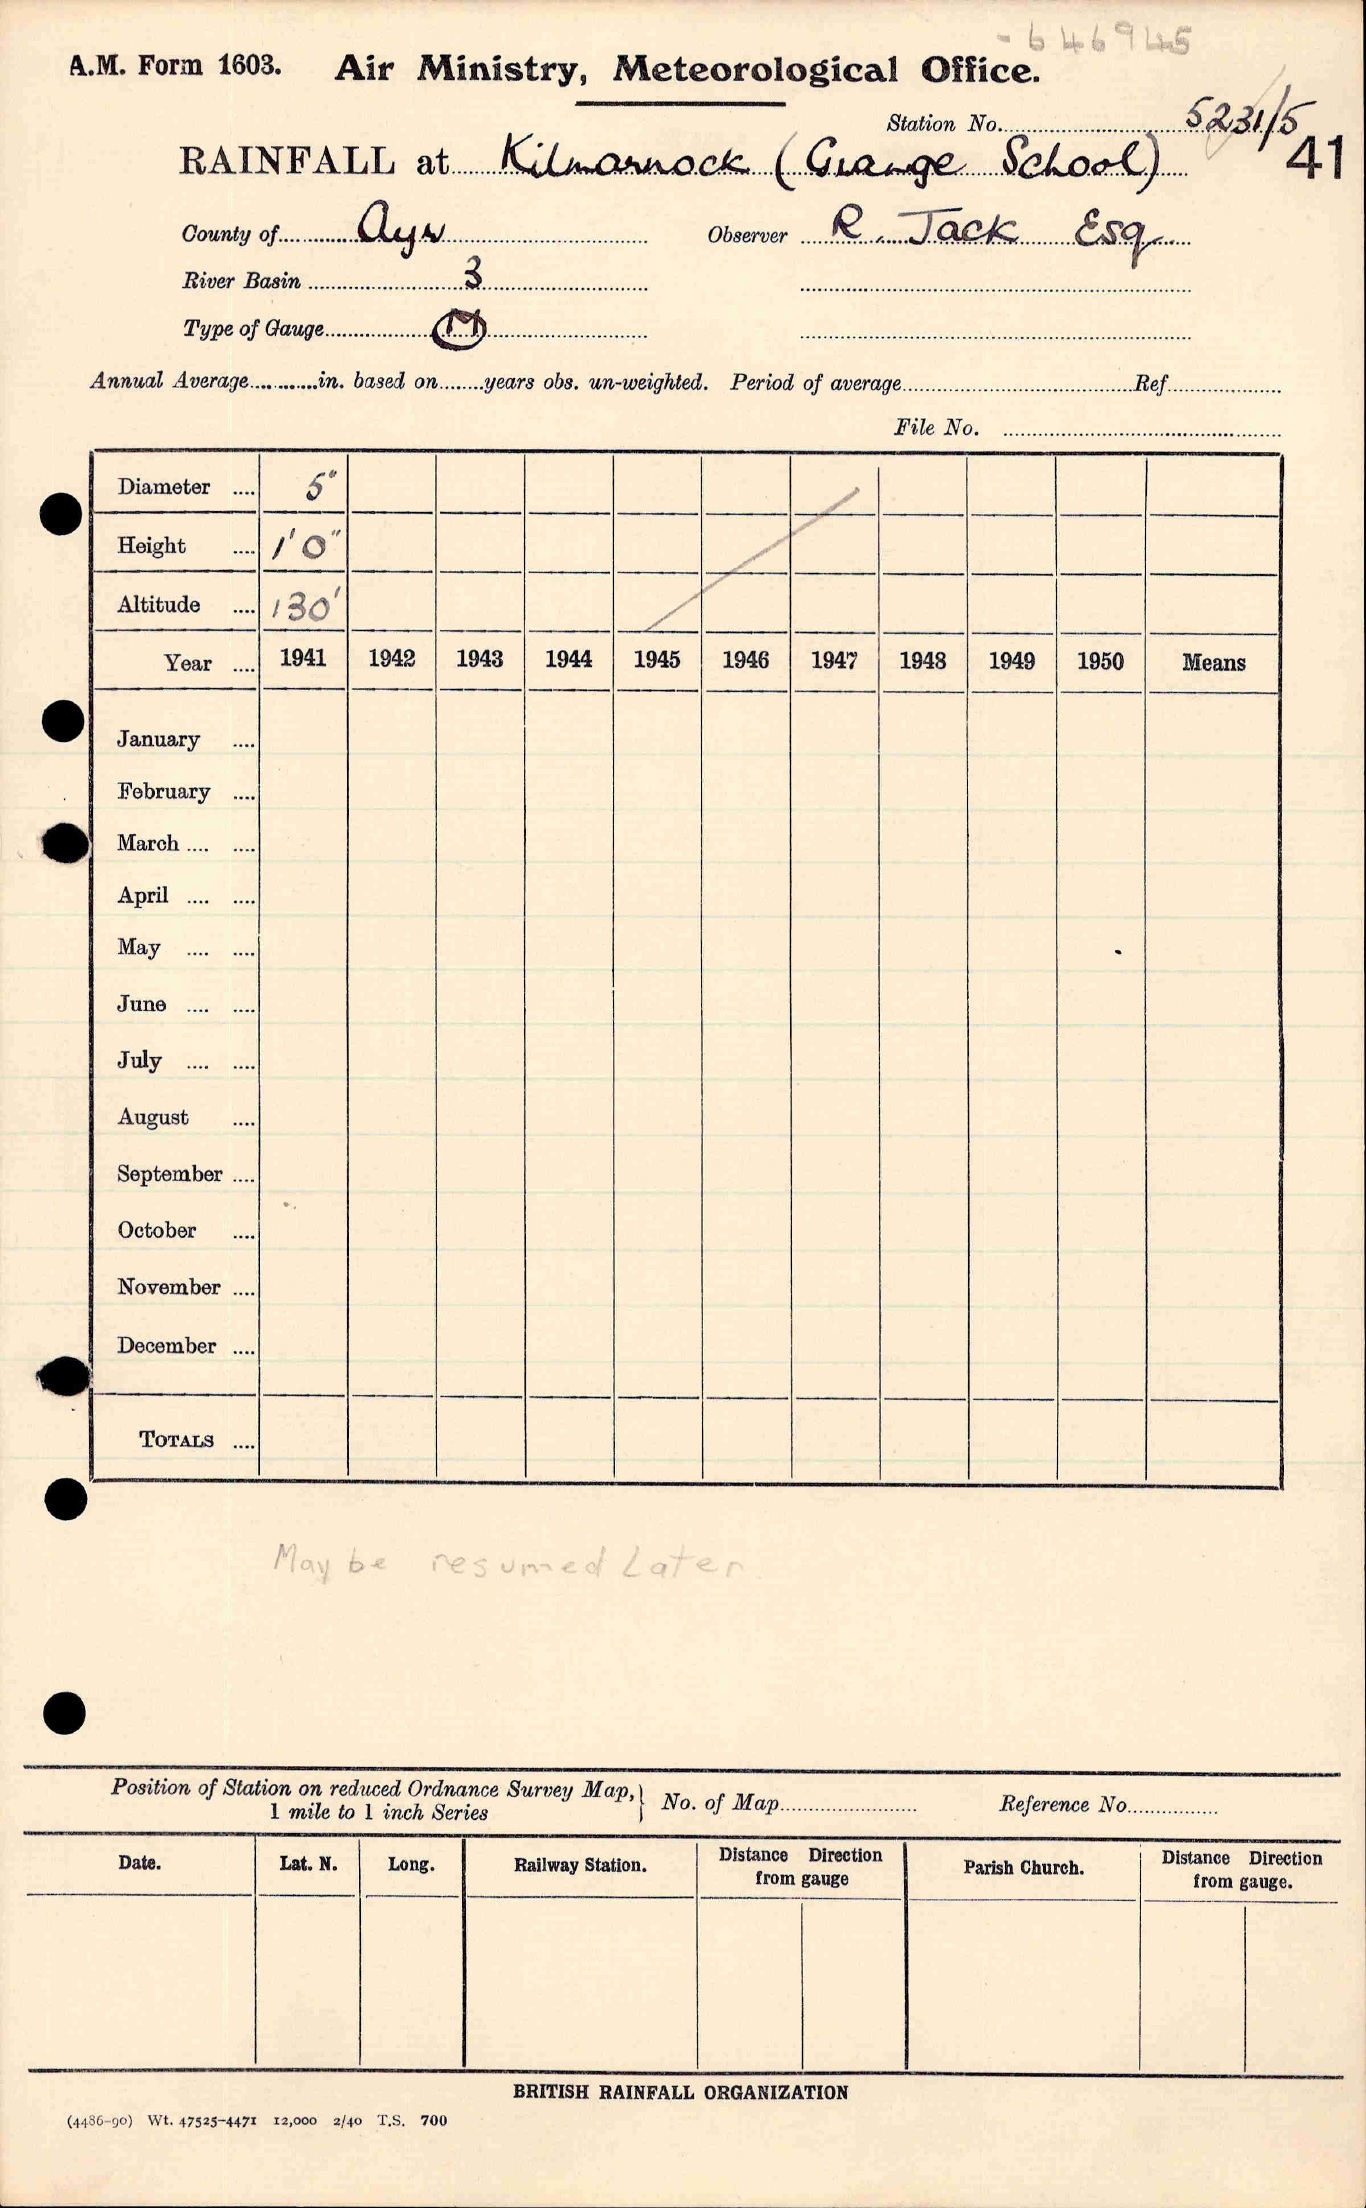 - 646945
A.M. Form 1603. Air Ministry, Meteorological Office.
Station No. 5231/5
41
RAINFALL at Kilmarnock (Grange School)
County of Ayr Observer R. Jack Esq
River Basin 3
Type of Gauge M
Annual Average in. based on years obs. un-weighted. Period of average Ref
File No.
Diameter .... 5"
Height .... 1'0"
Altitude .... 130'
Year .... 1941 1942 1943 1944 1945 1946 1947 1948 1949 1950 Means
January ....
February ....
March .... ....
April .... ....
May .... ....
June .... ....
July .... ....
August ....
September ....
October ....
November ....
December ....
TOTALS ....
May be resumed Later
Position of Station on reduced Ordnance Survey Map, } No. of Map Reference No.
1 mile to 1 inch Series
Date. Lat. N. Long. Railway Station. Distance Direction from gauge Parish Church. Distance Direction from gauge.
BRITISH RAINFALL ORGANIZATION
(4486-90) Wt. 47525-4471 12,000 2/40 T.S. 700